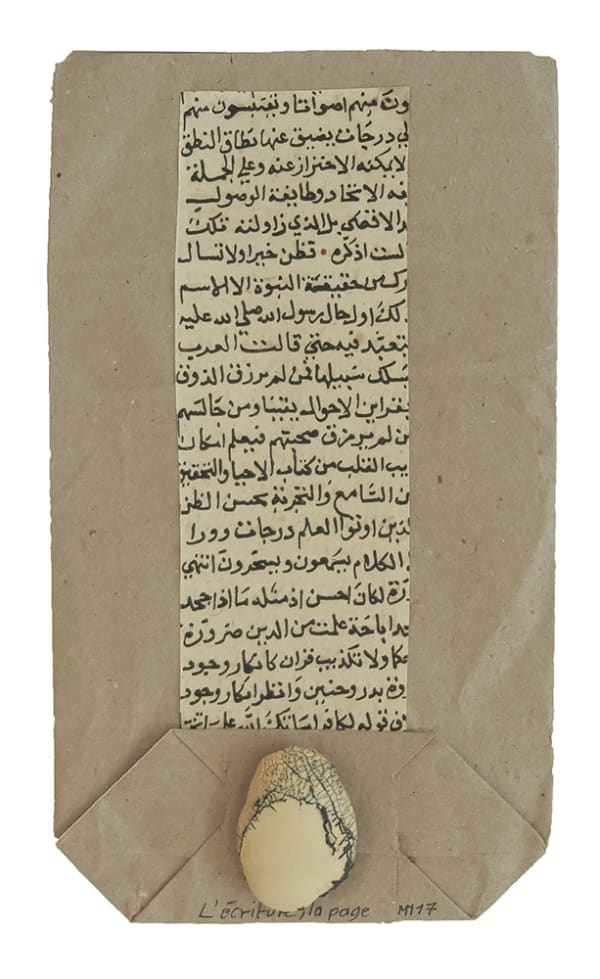 ون منهم اصواتا ويقتبسون منهم
لي درجات يضيق عنها نطاق النطق
لا يمكنه الاحتراز عنه وعلي الجملة
يفه الاتحاد وطايفة الوصول
الذي زاولته
لست اذكره • فظن خيرا ولا تسال
رك من حقيقة النبوة الا الاسم
اول حال رسول الله صلي الله عليه
يتعبد فيه حتي قالت العرب
يسلك سبيلها فمن لم يرزق الذوق
بقراين الاحوال يقينا ومن جالسهم
من لم يرزق صحبتهم فيعلم امكان
يب القلب من كتاب الاحيا والتحقيق
من السامع والتجربة بحسن الظن
لذين اوتوا العلم درجات وورا
الكلام يسمعون ويسخرون انتهي
لكان احسن اذ مثله ما اذا جحد
اباحة علمت من الدين ضرورة
حكما ولا تكذيب قران كانكار وجود
بدر وحنين وانظر انكار وجود
L'écriture, la page MM17